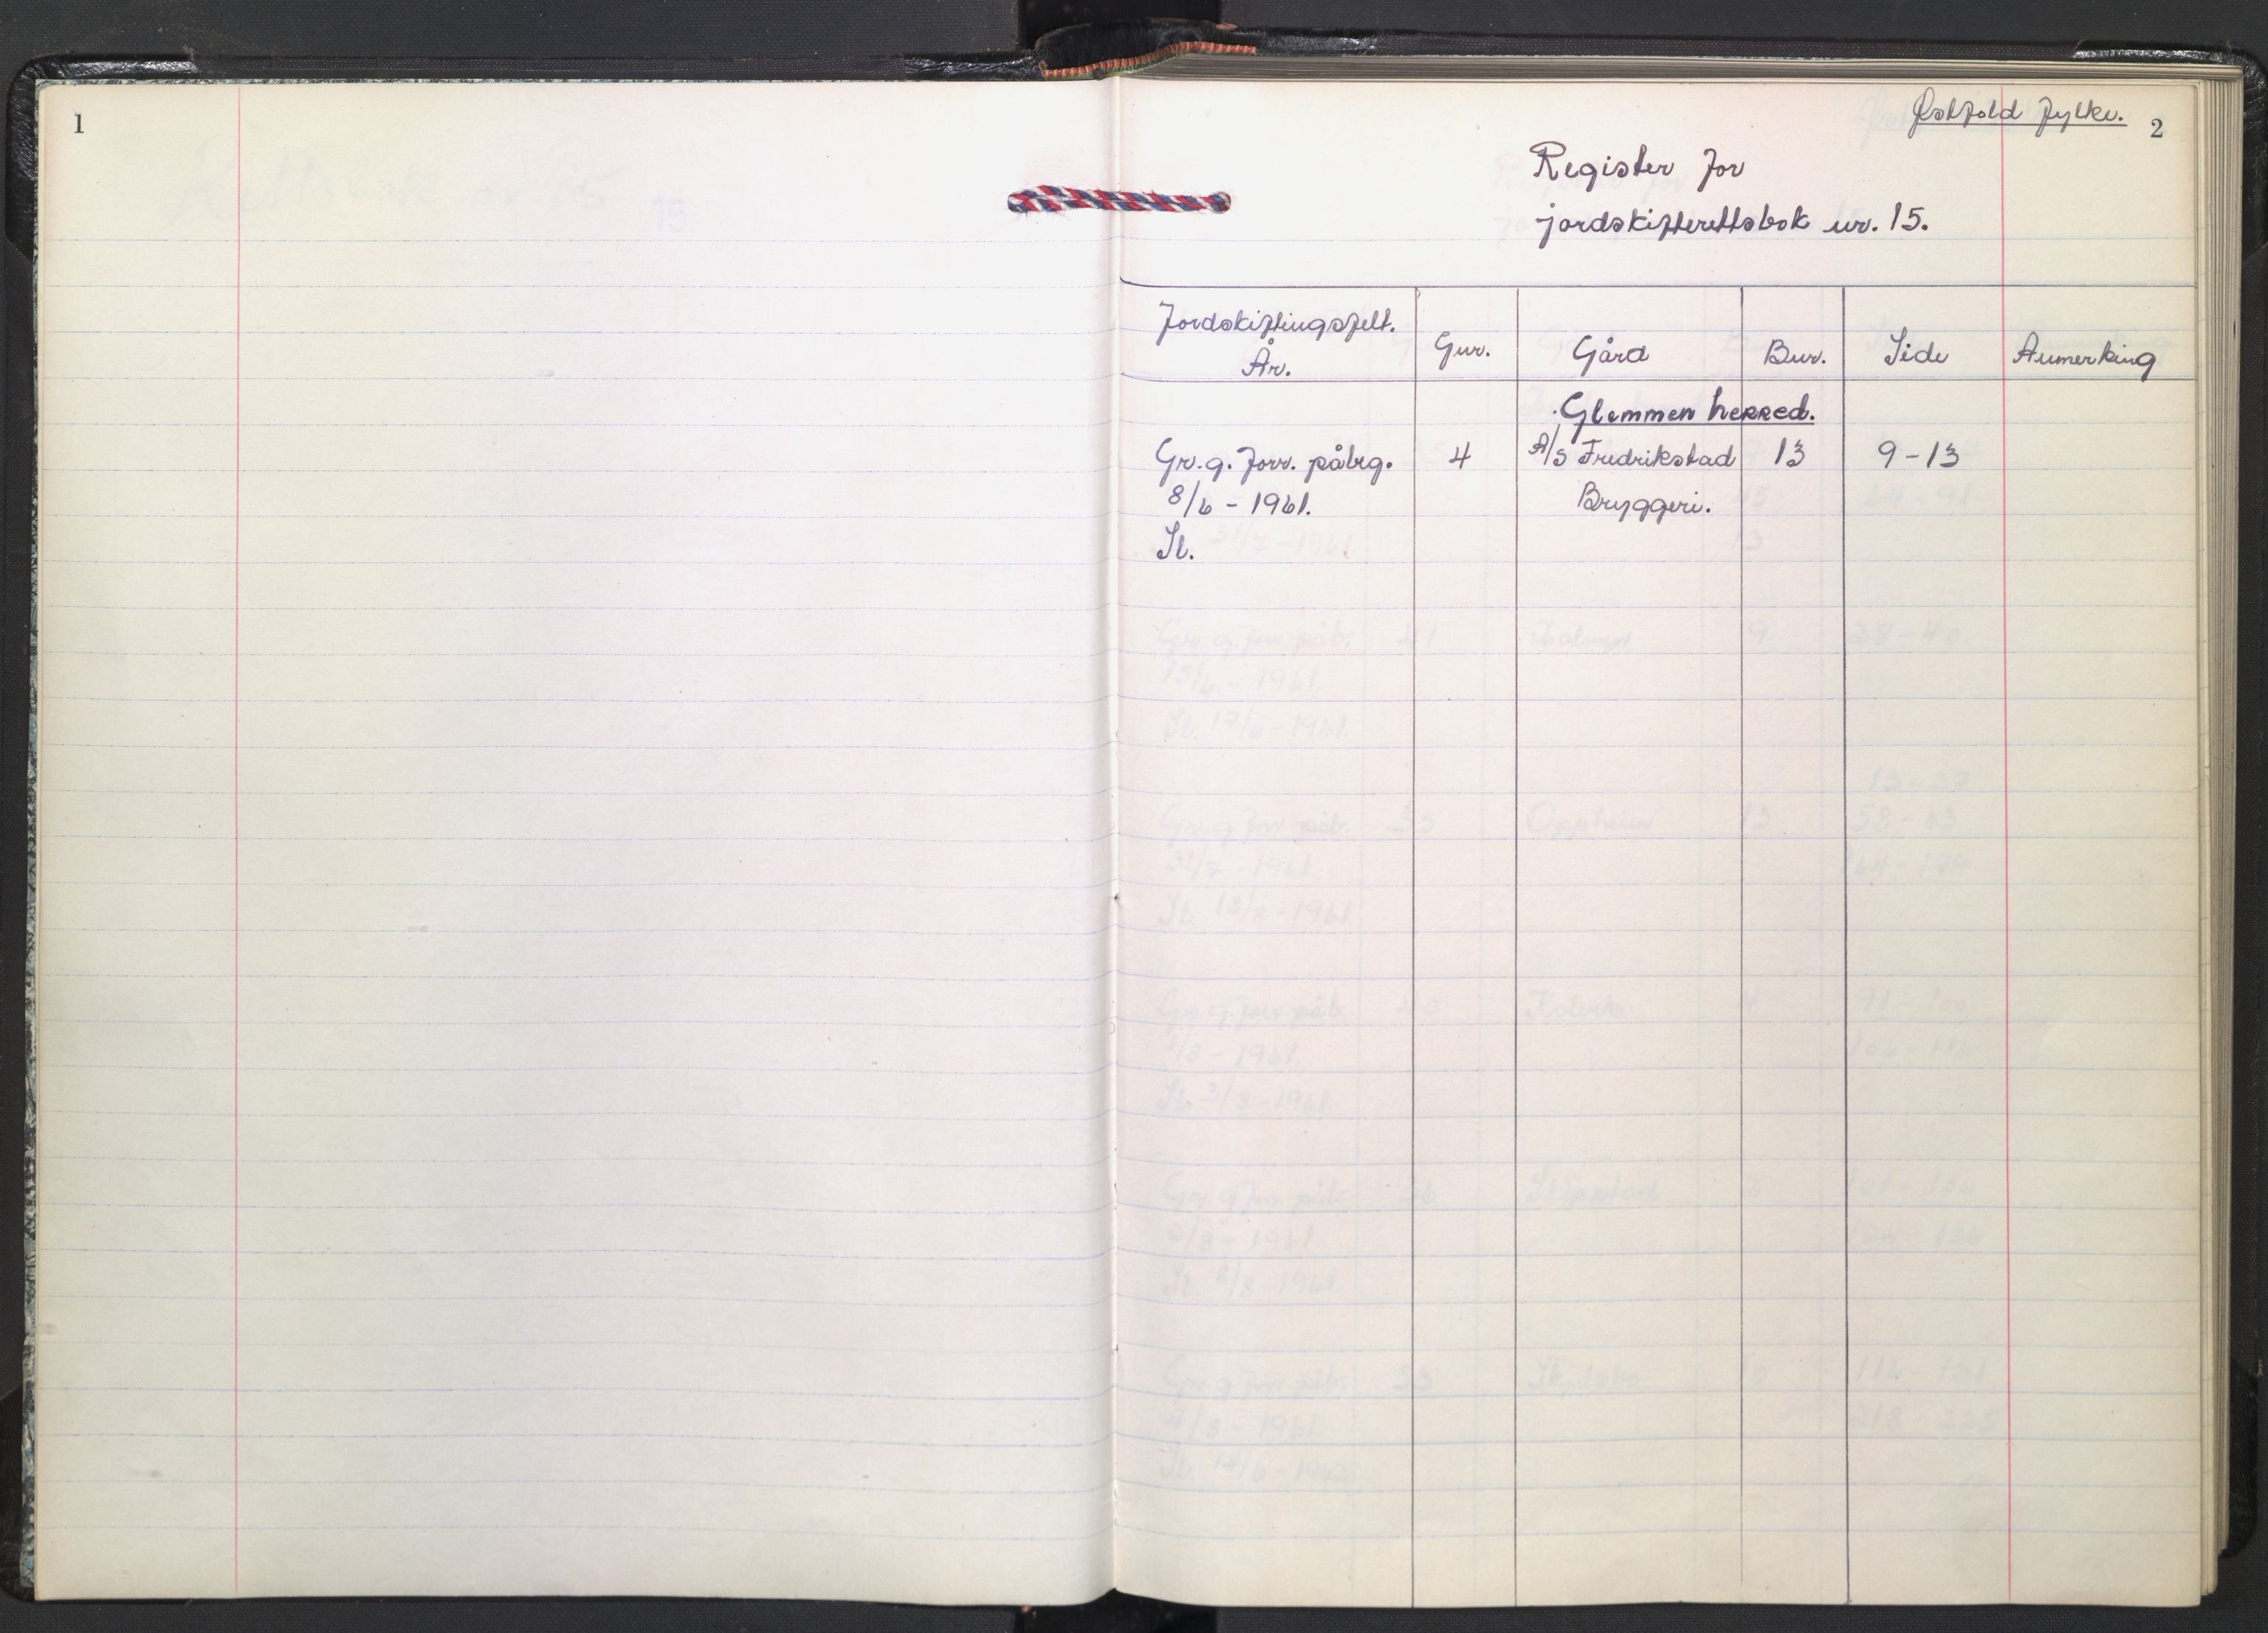 1
Østfold fylke.
2
Register for
jordskifterettsbok nr. 15.
Jordskiftingsfelt.
År.
Gnr.
Gård
Bnr.
Side
Anmerking
Glemmen herred.
Gr.g. forr. påbg.
4
A/S Fredrikstad
13
9-13
8/6 - 1961.
Bryggeri.
Sl.